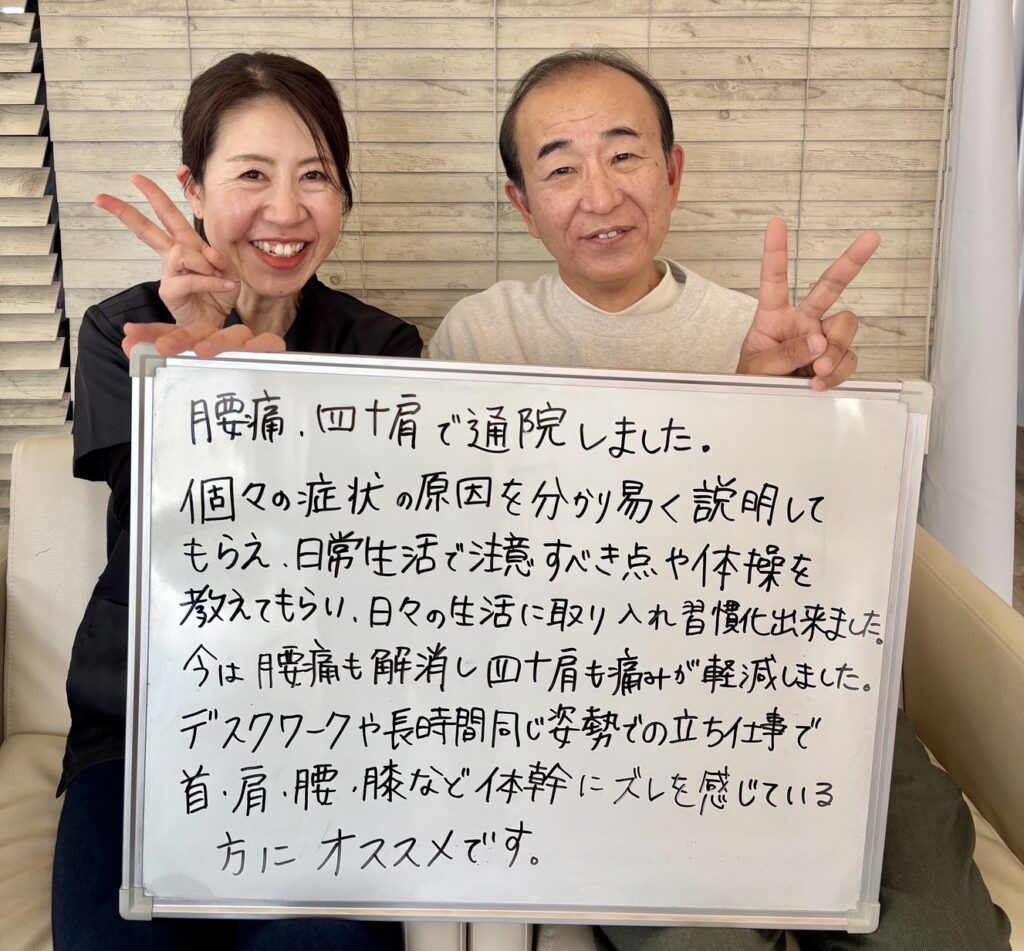 腰痛、四十肩で通院しました。
個々の症状の原因を分かり易く説明して
もらえ、日常生活で注意すべき点や体操を
教えてもらい、日々の生活に取り入れ習慣化出来ました。
今は腰痛も解消し四十肩も痛みが軽減しました。
デスクワークや長時間同じ姿勢での立ち仕事で
首・肩・腰・膝など体幹にズレを感じている
方にオススメです。